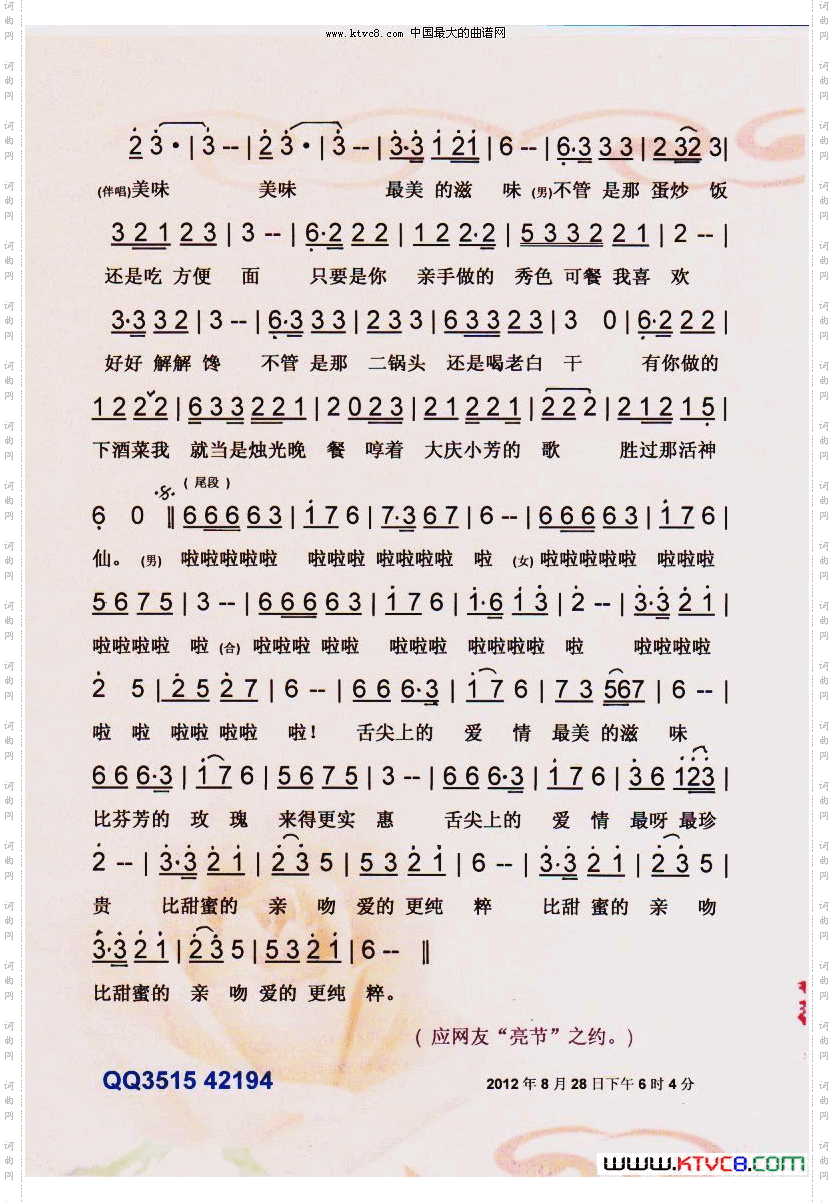 www.ktvc8.com 中国最大的曲谱网
2 3 · | 3 -- | 2 3 · | 3 -- | 3·3 1 21 | 6 -- | 6·3 3 3 | 2 32 3 |
(伴唱)美味 美味 最美 的滋 味 (男)不管 是那 蛋炒 饭
3 2 1 2 3 | 3 -- | 6·2 2 2 | 1 2 2·2 | 5 3 3 2 2 1 | 2 -- |
还是吃 方便 面 只要是你 亲手做的 秀色 可餐 我喜 欢
3·3 3 2 | 3 -- | 6·3 3 3 | 2 3 3 | 6 3 3 2 3 | 3 0 | 6·2 2 2 |
好好 解解 馋 不管 是那 二锅头 还是喝老白 干 有你做的
1 2 2 2 | 6 3 3 2 2 1 | 2 0 2 3 | 2 1 2 2 1 | 2 2 2 | 2 1 2 1 5 |
下酒菜我 就当是烛光晚 餐 哼着 大庆小芳的 歌 胜过那活神
(尾段)
6 0 ‖ 6 6 6 6 3 | 1 7 6 | 7·3 6 7 | 6 -- | 6 6 6 6 3 | 1 7 6 |
仙。 (男) 啦啦啦啦啦 啦啦啦 啦啦啦啦 啦 (女) 啦啦啦啦啦 啦啦啦
5 6 7 5 | 3 -- | 6 6 6 6 3 | 1 7 6 | 1·6 1 3 | 2 -- | 3·3 2 1 |
啦啦啦啦 啦 (合) 啦啦啦 啦啦 啦啦啦 啦啦啦啦 啦 啦啦啦啦
2 5 | 2 5 2 7 | 6 -- | 6 6 6·3 | 1 7 6 | 7 3 567 | 6 -- |
啦 啦 啦啦 啦啦 啦！ 舌尖上的 爱 情 最美 的滋 味
6 6 6·3 | 1 7 6 | 5 6 7 5 | 3 -- | 6 6 6·3 | 1 7 6 | 3 6 123 |
比芬芳的 玫 瑰 来得更实 惠 舌尖上的 爱 情 最呀 最珍
2 -- | 3·3 2 1 | 2 3 5 | 5 3 2 1 | 6 -- | 3·3 2 1 | 2 3 5 |
贵 比甜蜜的 亲 吻 爱的 更纯 粹 比甜 蜜的 亲 吻
3·3 2 1 | 2 3 5 | 5 3 2 1 | 6 -- ‖
比甜蜜的 亲 吻 爱的 更纯 粹。
( 应网友“亮节”之约。)
QQ3515 42194
2012 年 8 月 28 日下午 6 时 4 分
www.KTVC8.com